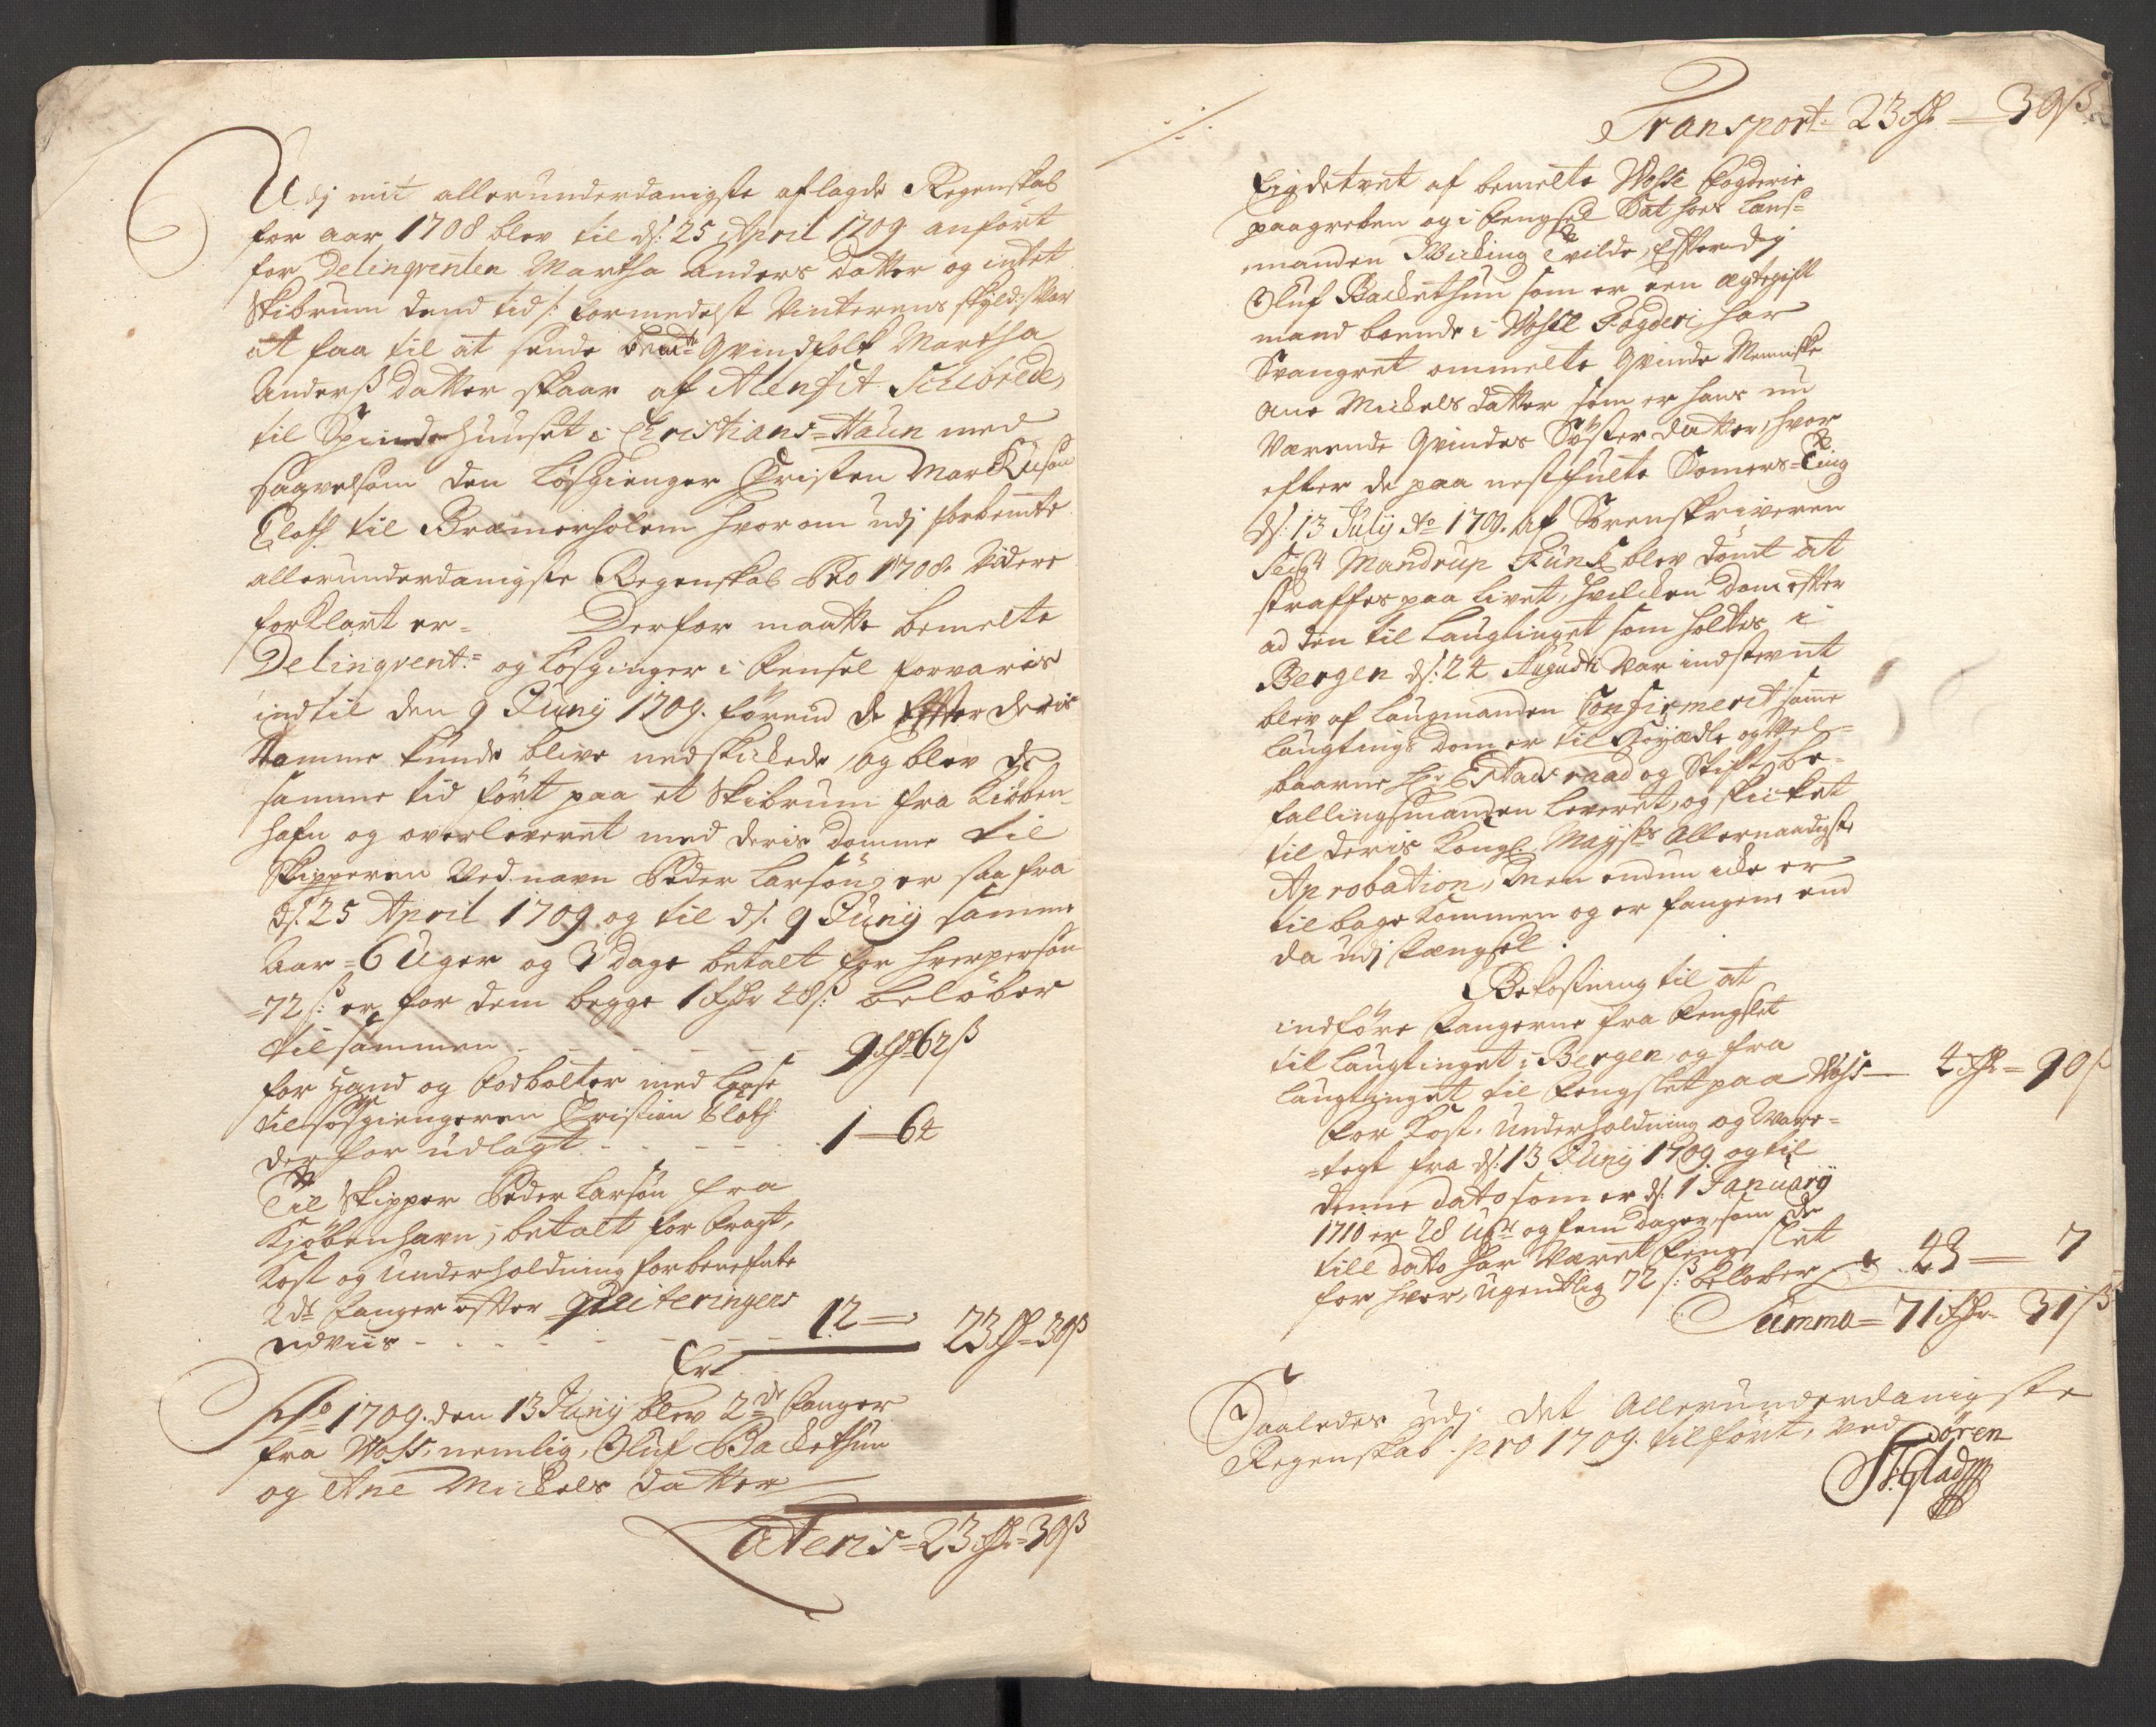 Udj mit allerunderdanigste aflagde Regenskab
for aar 1708 blev til ds: 25 April 1709 anført
for Delinqventen Martha Anders datter og intet
Skibrum dend tid /: formedelst Vinterens skyld :/ var
at faa til at sende bemte Qvindfolk Martha
Anderß datter skaar af Alenfit Schibrede,
til Spindehuuset i Christians=Haun med
saavelsom den Løsgienger Christen Markuson
Cloth til Bræmerholem hvorom udj forbemte
allerunderdanigste Regenskab Pro 1708 videre
forklart er= Derfor maatte bemelte
Delinqvent:= og Løsgienger i Fensel forvaris
indtil den 9 Junij 1709. førend de efter deris
Domme kunde blive nedskickede, og blev de
samme tid ført paa et Skibrum fra Kiøben=
hafn og overleveret med deris Domme til
Skipperen ved navn Peder Larsøn, er saa fra
ds: 25 April 1709 og til ds: 9 Junij samme
Aar =6 Uger og 3 dage betalt for hver person
=72 ß: er for dem begge 1 Rdr 48 ß: beløber
tilsammen - - - - - - 9 Rdr 62 ß
for Haand og Fodbolter med Laase
til Løsgiengeren Christian Cloth
derfor udlagt - - - - - 1 — 64
Til Skipper Peder Larsøn fra
Kjøbenhavn, betalt for Fragt,
Kost og Underholdning for benefnte
2de Fanger efter Qviteringens
udviis - - - - - - 12 =
Er 23 Rdr = 30 ß
Ao 1709. den 13 Junij blev 2de Fanger
fra Woss, nemlig, Oluf Backethun
og Ane Mickels datter
Lateris = 23 Rdr = 30 ß
Transport = 23 Rdr = 30 ß
Ligdetvet af bemelte Wosse Fogderie
paagreben og i Fengsel Sat hoes Lens=
manden Wicking Tvilde, efterdj
Oluf Backethun som er een ægtegift
mand boende i Wosse Fogderi, har
Svangret ommelte Qvinde Menniske
Ane Mickels datter som er hans nu
Værende Qvindes Søster datter, hvor
efter de paa nestfulte Somers=Ting
ds: 13 July Ao 1709. af Sorenskriveren
Seigr Mandrup Funk blev dømt at
straffes paa Livet, hvilcken Dom efter
ad den til Laugtinget som holtes i
Bergen ds: 24 Augusti var indstevnt
blev af Laugmanden Confirmerit samme
Laugtings Dom er til Høyædle og Vel=
baarne Hr Etads raad og Stift be=
fallingsmanden leveret, og skicket
til deris Kongl. Mayts Allernaadigste
Aprobation, Men endnu icke er
tilbage kommen og er fangerne end
da udj Fængsel.
Bekostning til at
indføre Fangerne fra Fengslet
til Laugtinget i Bergen, og fra
Laugtinget til Fengslet paa Woss — 4 Rdr = 90 ß
For Kost, Underholdning og Vare=
=tegt fra ds: 13 Junij 1709 og til
denne dato som er ds: 1 January
1710 er 28 Ugr og fem dager, som de
till dato har Været Fengslet
for hver, ugentlig 72 ß: beløber 43 — 7
Summa = 71 Rdr. 31 ß
Saaledes udj det Allerunderdanigste
Regenskab pro 1709. tilført, Ved Søren